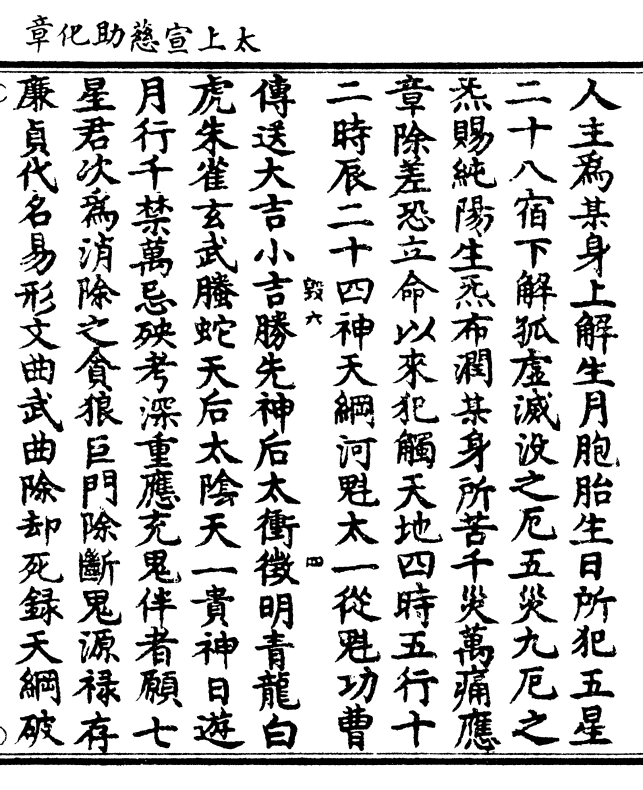 太上宣慈助化章
人主爲某身上解生月胞胎生日所犯五星
二十八宿下解狐虛滅没之厄五災九厄之
炁賜純陽生炁布潤某身所苦千災萬痛應
章除差恐立命以來犯觸天地四時五行十
二時辰二十四神天綱河魁太一從魁功曹
毀六
四
傳送大吉小吉勝先神后太衝徵明青龍白
虎朱雀玄武螣蛇天后太陰天一貴神日遊
月行千禁萬忌殃考深重應充鬼伴者願七
星君次爲消除之貪狼巨門除斷鬼源禄存
廉貞代名易形文曲武曲除却死録天綱破